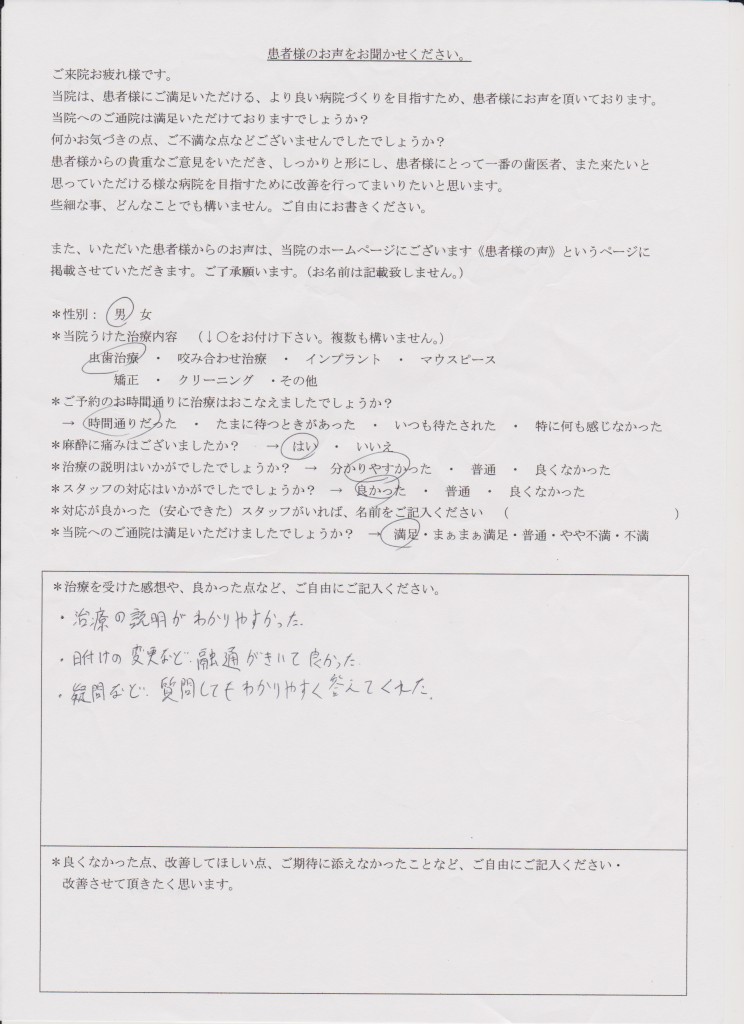 患者様のお声をお聞かせください。
ご来院お疲れ様です。
当院は、患者様にご満足いただける、より良い病院づくりを目指すため、患者様にお声を頂いております。
当院へのご通院は満足いただけておりますでしょうか？
何かお気づきの点、ご不満な点などございませんでしたでしょうか？
患者様からの貴重なご意見をいただき、しっかりと形にし、患者様にとって一番の歯医者、また来たいと
思っていただける様な病院を目指すために改善を行ってまいりたいと思います。
些細な事、どんなことでも構いません。ご自由にお書きください。
また、いただいた患者様からのお声は、当院のホームページにございます《患者様の声》というページに
掲載させていただきます。ご了承願います。（お名前は記載致しません。）
＊性別： 男 女
＊当院うけた治療内容 （↓○をお付け下さい。複数も構いません。）
虫歯治療 ・ 咬み合わせ治療 ・ インプラント ・ マウスピース
矯正 ・ クリーニング ・その他
＊ご予約のお時間通りに治療はおこなえましたでしょうか？
→ 時間通りだった ・ たまに待つときがあった ・ いつも待たされた ・ 特に何も感じなかった
＊麻酔に痛みはございましたか？ → はい ・ いいえ
＊治療の説明はいかがでしたでしょうか？ → 分かりやすかった ・ 普通 ・ 良くなかった
＊スタッフの対応はいかがでしたでしょうか？ → 良かった ・ 普通 ・ 良くなかった
＊対応が良かった（安心できた）スタッフがいれば、名前をご記入ください （ ）
＊当院へのご通院は満足いただけましたでしょうか？ → 満足・まぁまぁ満足・普通・やや不満・不満
＊治療を受けた感想や、良かった点など、ご自由にご記入ください。
・治療の説明がわかりやすかった.
・日付けの変更など.融通がきいて良かった.
・疑問など.質問してもわかりやすく答えてくれた.
＊良くなかった点、改善してほしい点、ご期待に添えなかったことなど、ご自由にご記入ください・
改善させて頂きたく思います。